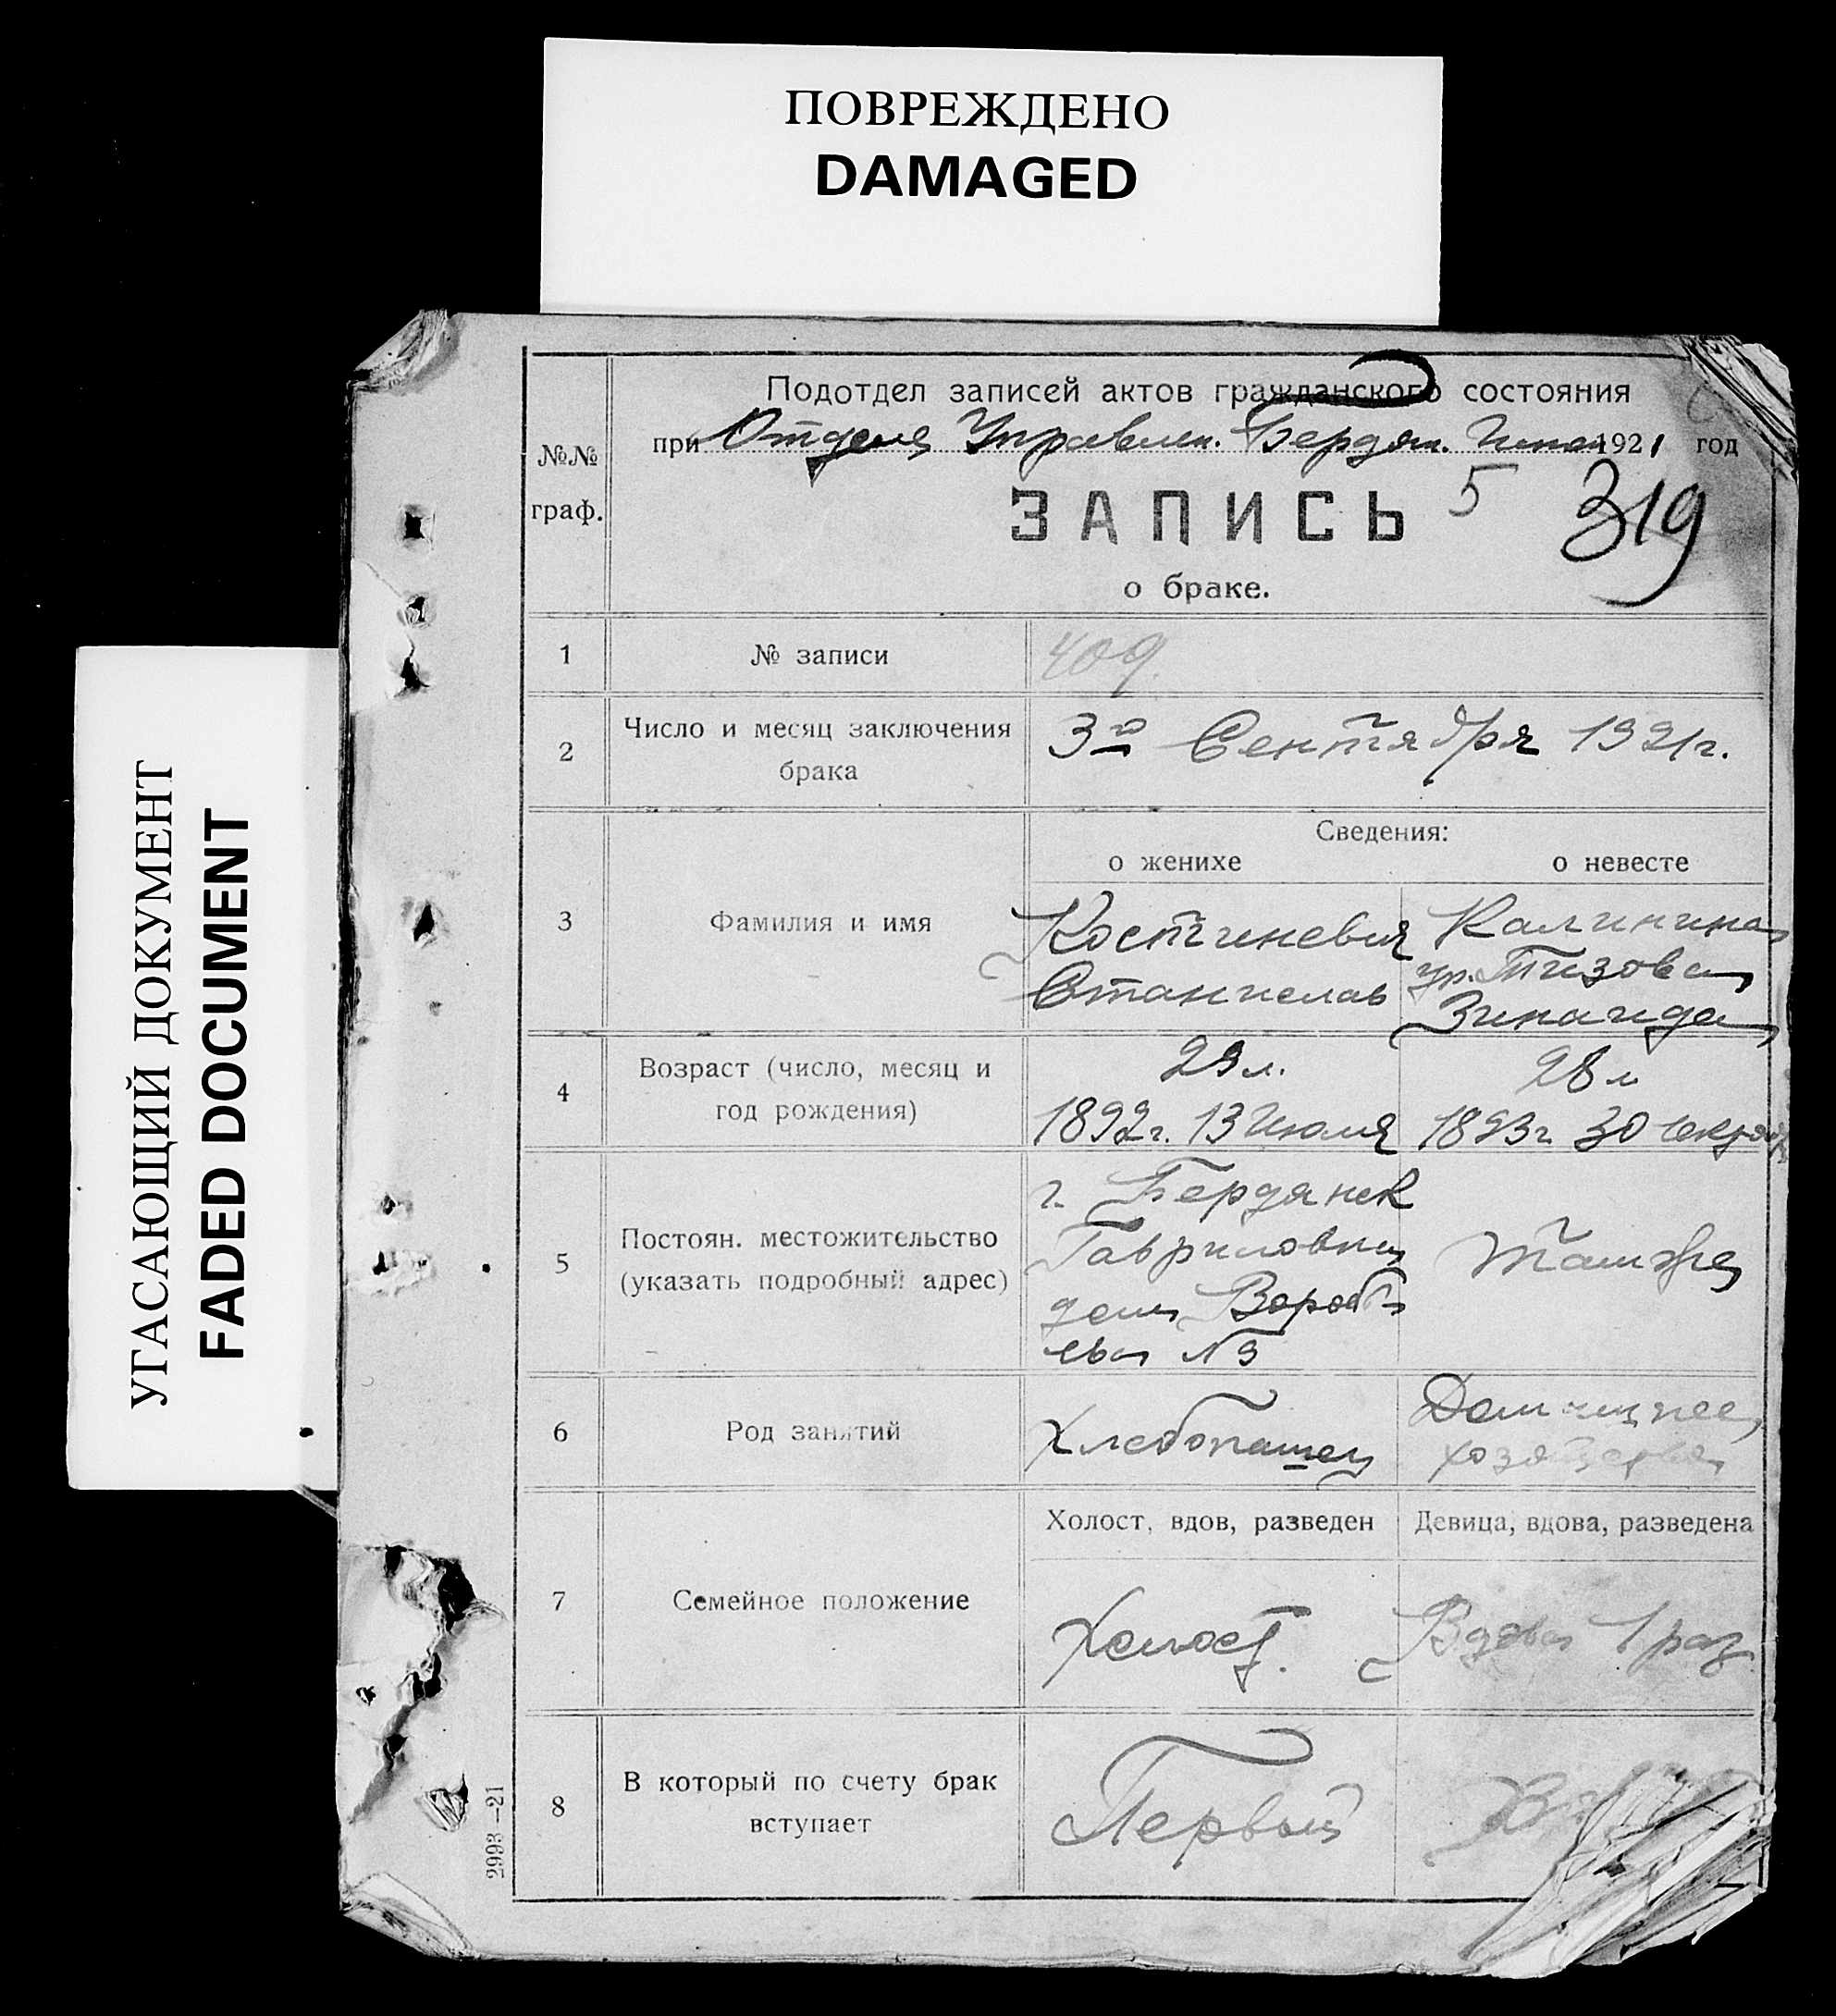 ПОВРЕЖДЕНО
DAMAGED
УГАСАЮЩИЙ ДОКУМЕНТ
FADED DOCUMENT
Подотдел записей актов гражданского состояния
№№ граф.
при Отделе Управлен. Бердян. 1921 год
ЗАПИСЬ 5 319
о браке.
1 № записи 409
2 Число и месяц заключения брака
3го Сентября 1921г.
Сведения:
о женихе о невесте
3 Фамилия и имя
Костиневич
Станислав
Калинина
ур. Тизова
Зинаида
4 Возраст (число, месяц и год рождения)
29 л.
1892г. 13 Июля
28 л
1893г. 30
5 Постоян. местожительство (указать подробный адрес)
г. Бердянск
дом Воробь
ева №3
Там же
6 Род занятий
Хлебопашец
Домашнее
хозяйство
7 Семейное положение
Холост, вдов, разведен
Девица, вдова, разведена
Холост.
Вдова 1 раз
8 В который по счету брак вступает
Первый
2993—21